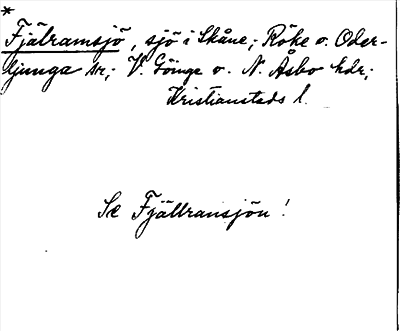 *
Fjälramsjö, sjö i Skåne; Röke o. Oder-
ljunga snr; V. Göinge o. N. Åsbo hdr;
Kristianstads l.
Se Fjällransjön!